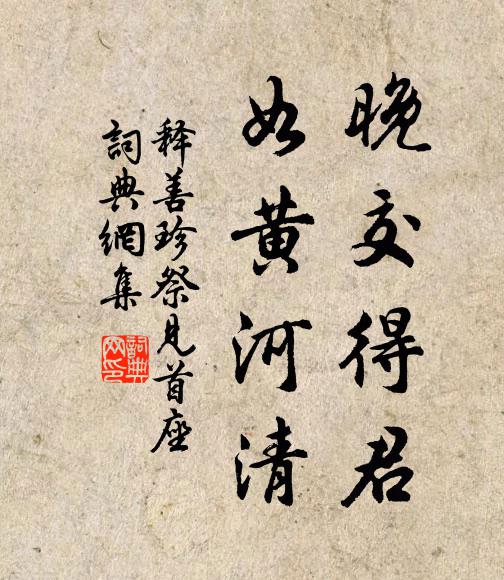 晚交得君
如黄河清
释善珍祭见首座
詞典網集
詞典网印